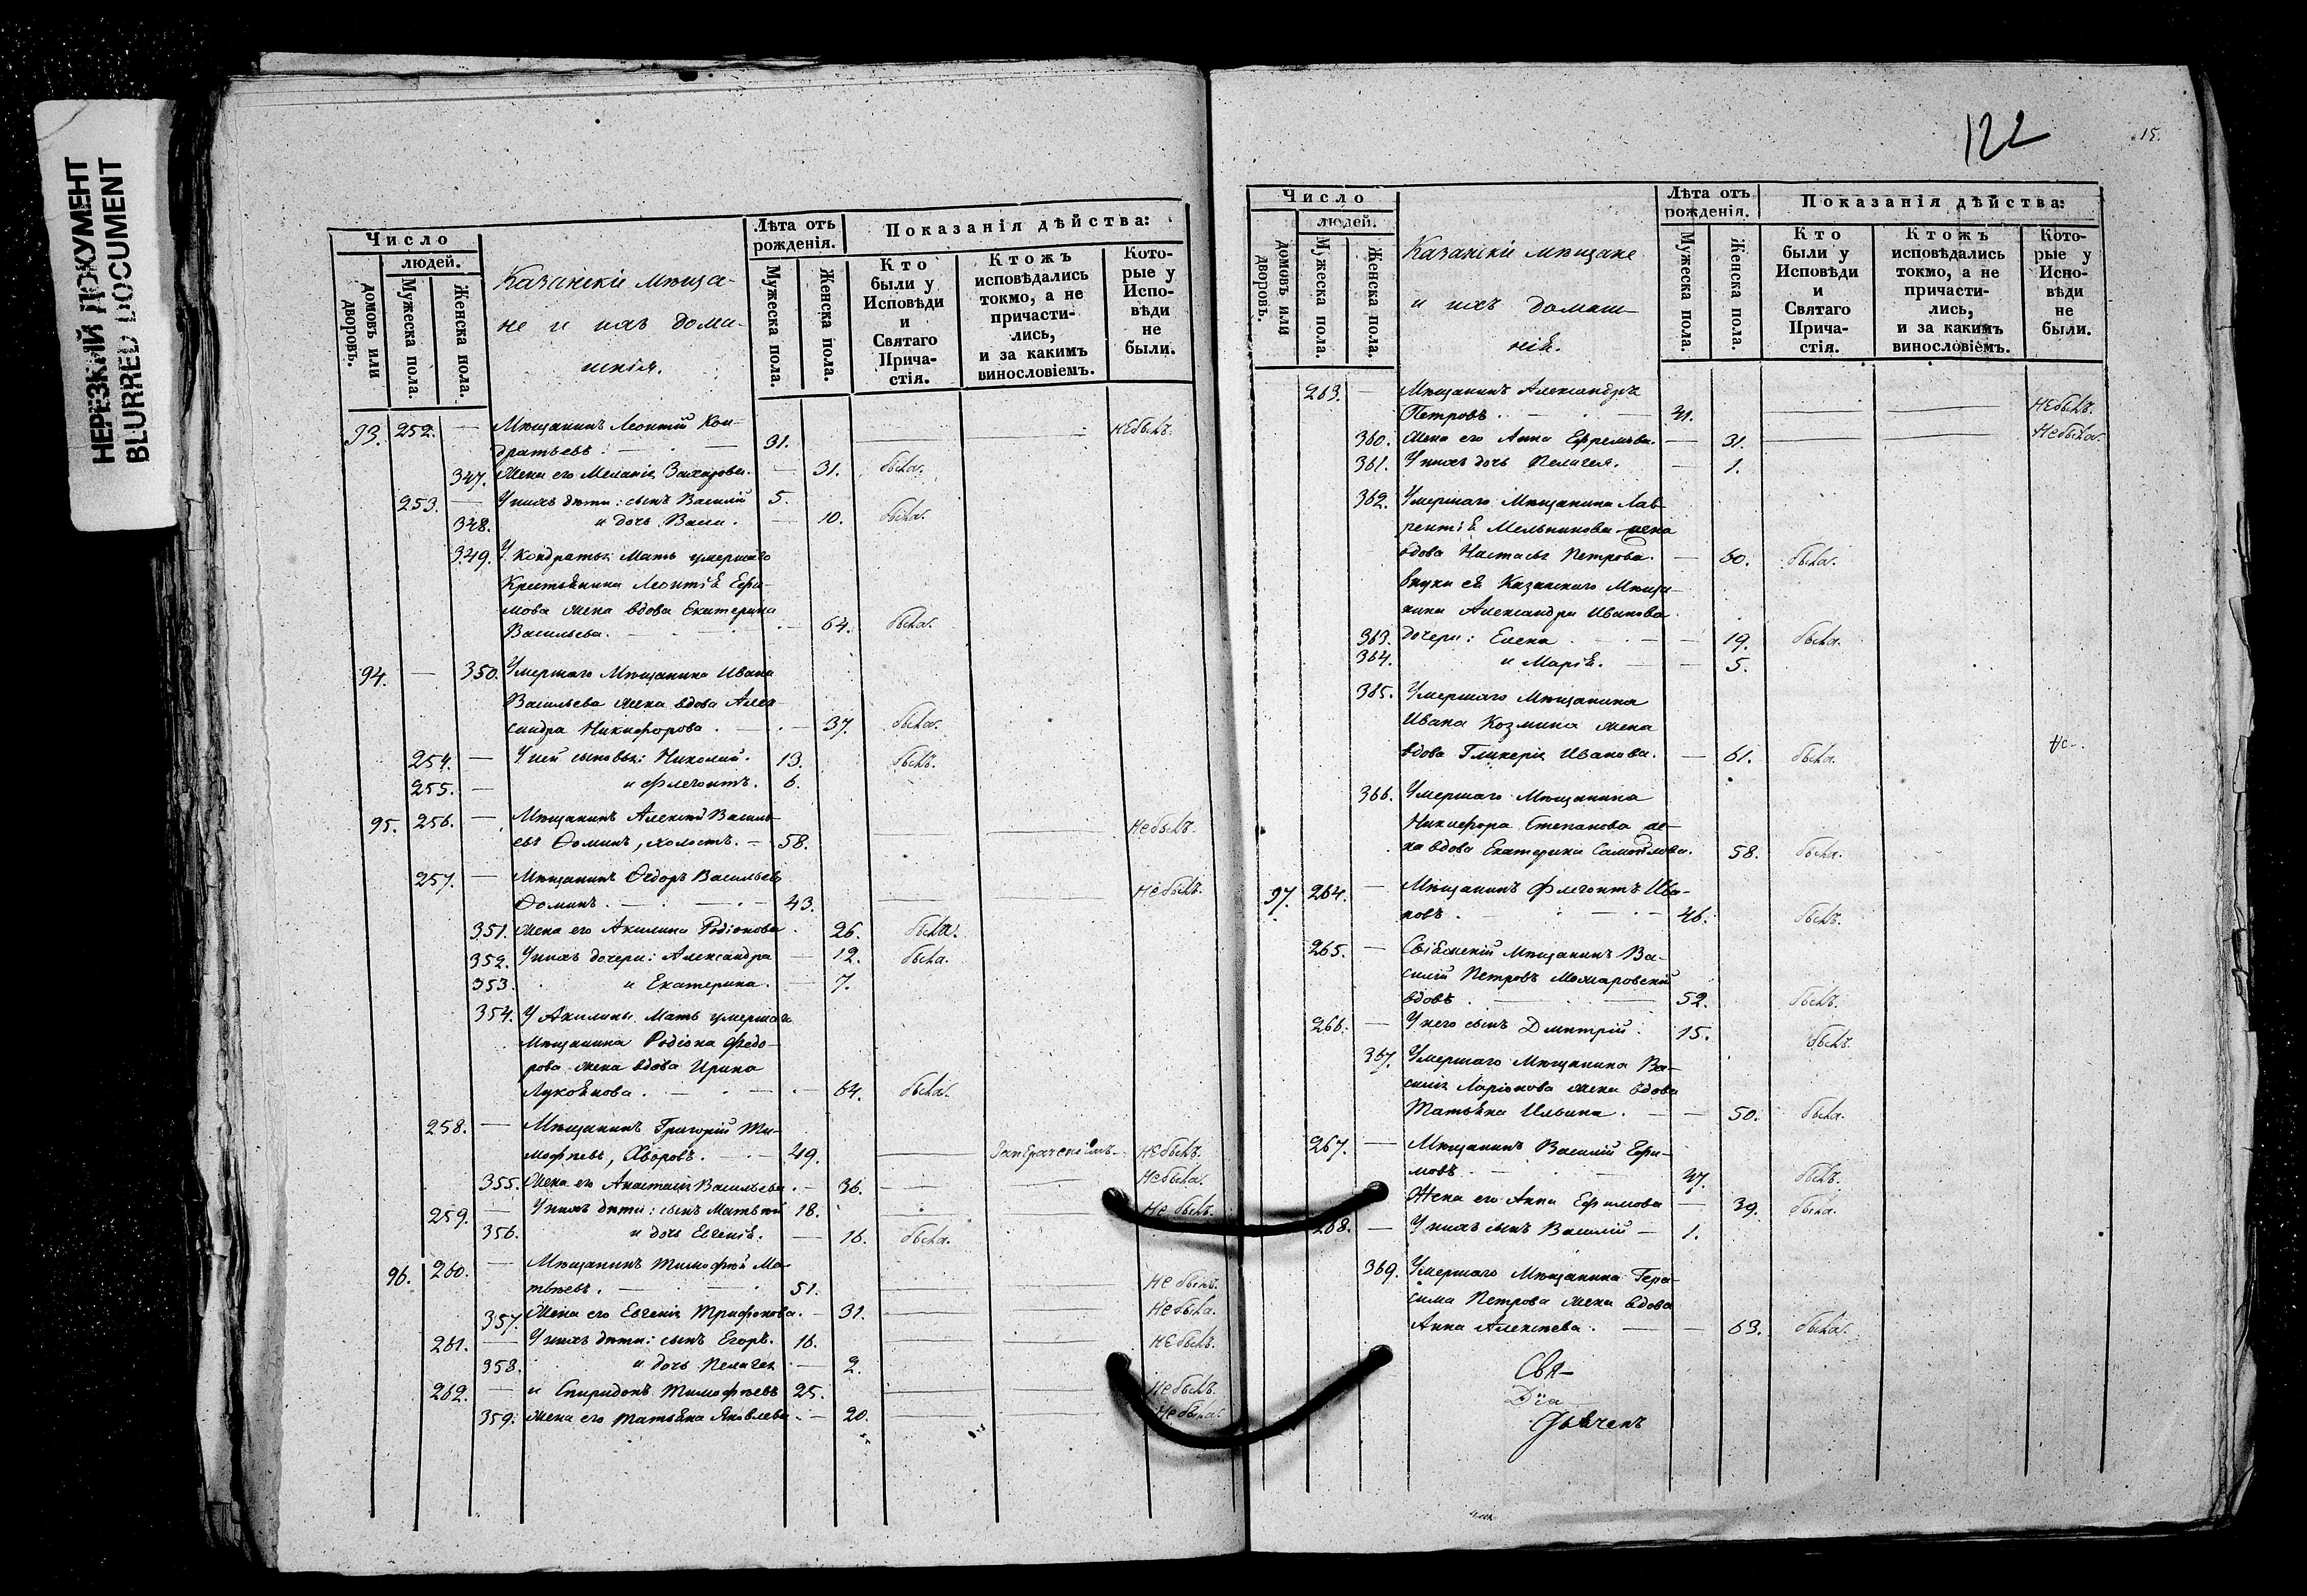 НЕРЕЗКИЙ ДОКУМЕНТ
BLURRED DOCUMENT
Число
людей.
домовъ или дворовъ.
Мужеска пола.
Женска пола.
Казанскіе мѣща-
не и ихъ дома-
шнія.
Лѣта отъ рожденія.
Мужеска пола.
Женска пола.
Показанія дѣйства:
Кто были у Исповѣди и Святаго Причастія.
Ктожъ исповѣдались токмо, а не причастились, и за какимъ винословіемъ.
Которые у Исповѣди не были.
93. 252. — Мѣщанинъ Леонтій Кон-
дратьевъ. — 31. небылъ.
347. Жена его Меланія Захарова. — 31. была.
253. — У нихъ дѣти: сынъ Василій 5.
348. и дочь Васи. — 10. была.
349. У Кондратья Мать умершаго
Крестьянина Леонтія Ефи-
мова жена вдова Екатерина
Васильева. — 64. была.
94. — 350. Умершаго Мѣщанина Ивана
Васильева жена вдова Алек
сандра Никифорова. — 37. была.
254. — У ней сыновья: Николай. 13. былъ.
255. — и Флегонтъ. 6.
95. 256. — Мѣщанинъ Алексѣй Василь-
евъ Ѳоминъ, холостъ. — 58. небылъ.
257. — Мѣщанинъ Ѳедоръ Васильевъ
Ѳоминъ. — 43. небылъ.
351. Жена его Акилина Родіонова. 26. была.
352. У нихъ дочери: Александра — 12. была.
353. и Екатерина. — 7.
354. У Акилины Мать умершаго
Мѣщанина Родіона Федо-
рова жена вдова Ирина
Лукоянова. — 64. была.
258. — Мѣщанинъ Григорій Ти-
мофѣевъ, Хворовъ. — 49. небылъ.
355. Жена его Анастасія Васильева. — 36. небыла.
259. — У нихъ дѣти: сынъ Матвѣй 18. небылъ.
356. и дочь Евгенія. — 16. была.
96. 260. — Мѣщанинъ Тимофѣй Ма-
твѣевъ. — 51. небылъ.
357. Жена его Евгенія Трифонова. — 31. небыла.
261. — У нихъ дѣти: сынъ Егоръ. 16. небылъ.
358. и дочь Пелагея — 2.
262. — и Спиридонъ Тимофѣевъ 25. небылъ.
359. Жена его Татьяна Яковлева. — 20. небыла.
122
15.
Число
людей.
домовъ или дворовъ.
Мужеска пола.
Женска пола.
Казанскіе мѣщане
и ихъ домаш-
нія.
Лѣта отъ рожденія.
Мужеска пола.
Женска пола.
Показанія дѣйства:
Кто были у Исповѣди и Святаго Причастія.
Ктожъ исповѣдались токмо, а не причастились, и за какимъ винословіемъ.
Которые у Исповѣди не были.
263. — Мѣщанинъ Александръ
Петровъ. — 31. небылъ.
360. Жена его Анна Ефремова. — 31. небыла.
361. У нихъ дочь Пелагея. — 1.
362. Умершаго Мѣщанина Лав-
рентія Мельникова жена
вдова Настасья Петрова. — 60. была.
внуки ея Казанскаго Мѣща-
нина Александра Иванова
363. дочери: Елена — 19. была.
364. и Марія. — 5.
365. Умершаго Мѣщанина
Ивана Козмина жена
вдова Гликерія Иванова. — 61. была. Не-
366. Умершаго Мѣщанина
Никифора Степанова же-
на вдова Екатерина Самойлова. 58. была.
97. 264. — Мѣщанинъ Флегонтъ Ива-
новъ. — 46. былъ.
265. — Мѣщанинъ Ва-
силій Петровъ
вдовъ. — 52. былъ.
266. — У него сынъ Дмитрій. 15. былъ.
367. Умершаго Мѣщанина Ва-
силія Ларіонова жена вдова
Татьяна Ильина. — 50. была.
267. — Мѣщанинъ Василій Ефи-
мовъ. — 37. былъ.
Жена его Анна Ефимова — 39. была.
268. — У нихъ сынъ Василій — 1.
369. Умершаго Мѣщанина Гера-
сима Петрова жена вдова
Анна Алексѣева. — 63. была.
Свя-
Діа